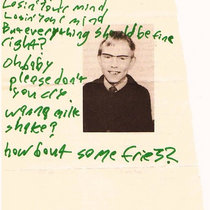 Losin' Your mind,
Losin' Your mind
But everything should be fine
right?
Oh baby
please don't
you cry.
wanna milk
shake?
how bout some fries?